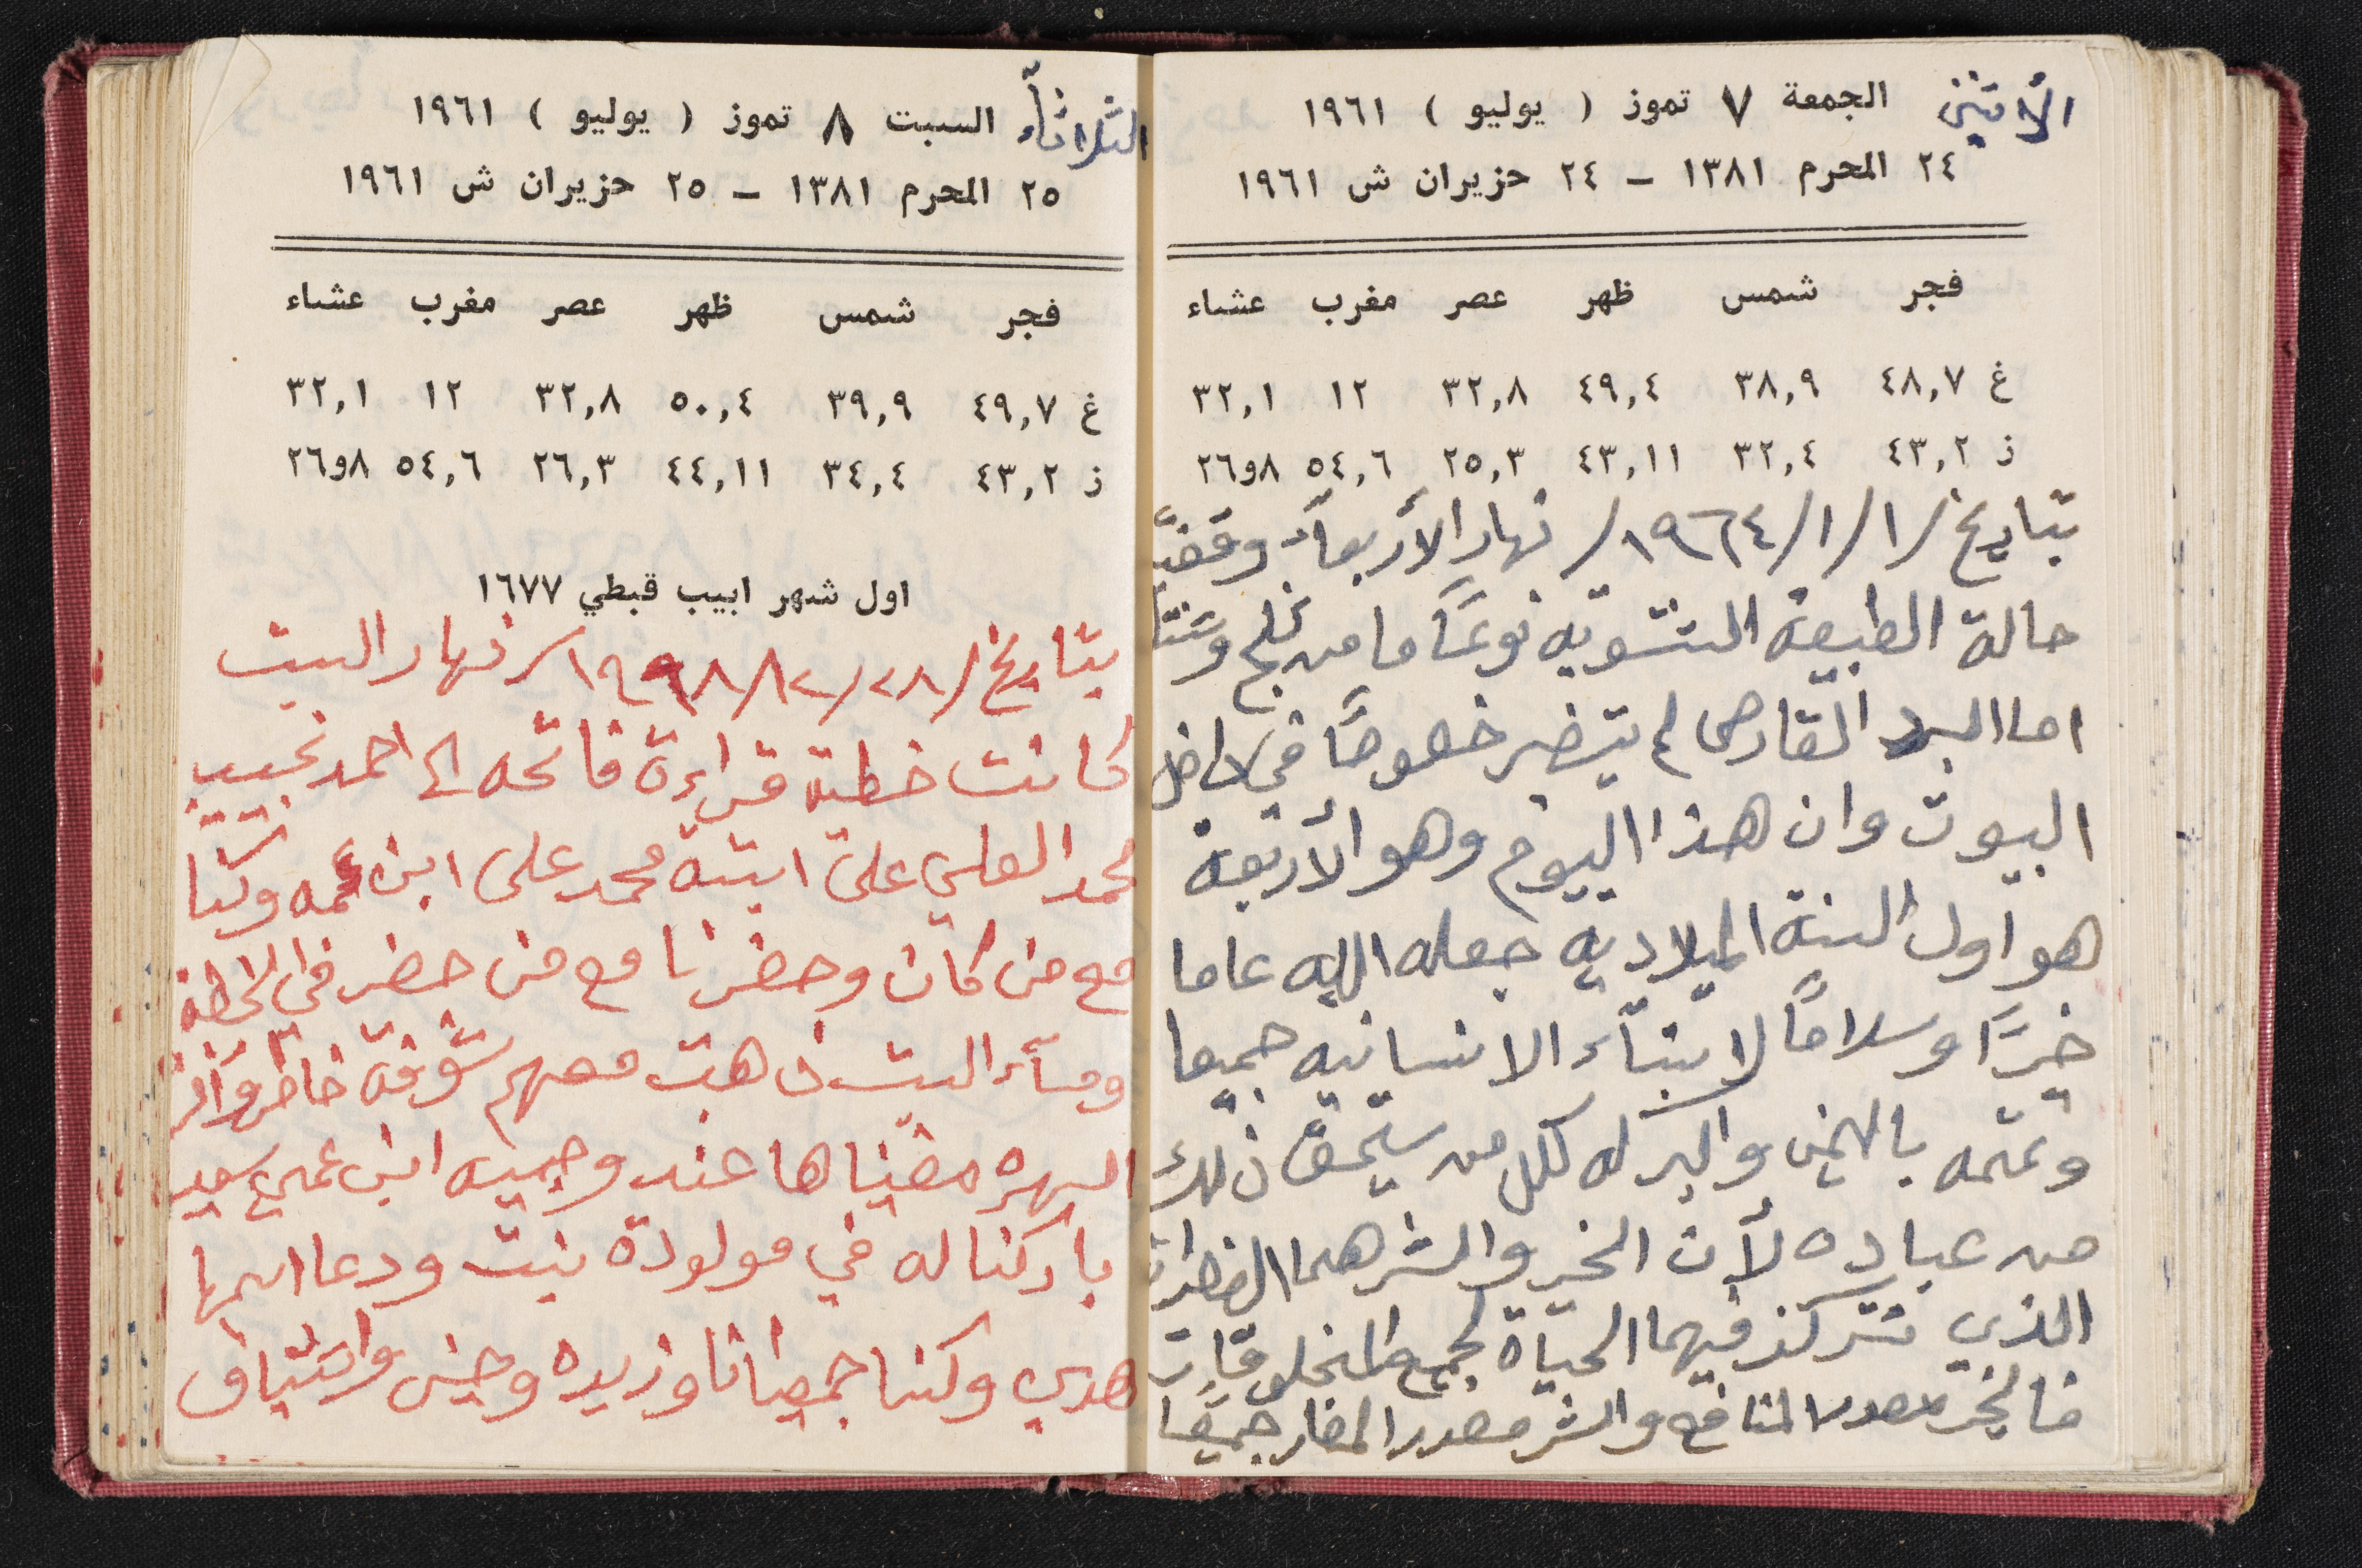 الأثنين الجمعة ٧ تموز ( يوليو ) ١٩٦١
٢٤ المحرم ١٣٨١ – ٢٤ حزيران ش ١٩٦١
فجر شمس ظهر عصر مغرب عشاء
غ ٤٨,٧ ٣٨,٩ ٤٩,٤ ٣٢,٨ ١٢ ٣٢,١
ز ٤٣,٢ ٣٢,٤ ٤٣,١١ ٢٥,٣ ٥٤,٦ ٨و٢٦
بتاريخ /١/١/١٩٦٤/ نهار الأربعآء
حالة الطبيعة الشتويه نوعًا ما من ثلج وشتآ
اما البرد القارص لم يتضهر خصوصًا في
البيوت وان هذا اليوم وهو الأربعة
هو اول السنة الميلاديه جعله الله عاما
خيرًا وسلامًا لابنآء الانسانيه جميعا
باليمن والبركه لكل من يستحق ذلك
من عباده لأن الخير والشر هما
الذي تتركز فيهما الحياة لجميع المخلوقات
فالخير مصدر المنافع والشر مصدر المضار جميعًا
الثلاثآء السبت ٨ تموز ( يوليو ) ١٩٦١
٢٥ المحرم ١٣٨١ – ٢٥ حزيران ش ١٩٦١
فجر شمس ظهر عصر مغرب عشاء
غ ٤٩,٧ ٣٩,٩ ٥٠,٤ ٣٢,٨ ١٢ ٣٢,١
ز ٤٣,٢ ٣٤,٤ ٤٤,١١ ٢٦,٣ ٥٤,٦ ٨و٢٦
اول شهر ابيب قبطي ١٦٧٧
بتاريخ /٢٨/ نهار السبت
كانت خطبة قراءة فاتحه الى احمد نجيب
محمد العلي على ابنة محمد علي ابن عمه وكنا
مع من كان وحضرنا مع من حضر في الخطبة
ومسآء السبت ذهبت معهم شوفة خاطر
السهره مضيناها عند وجيه ابن عمي سعيد
باركنا له في مولودة بنت ودعا اسمها
هدى وكنا جميعا انا وزيده